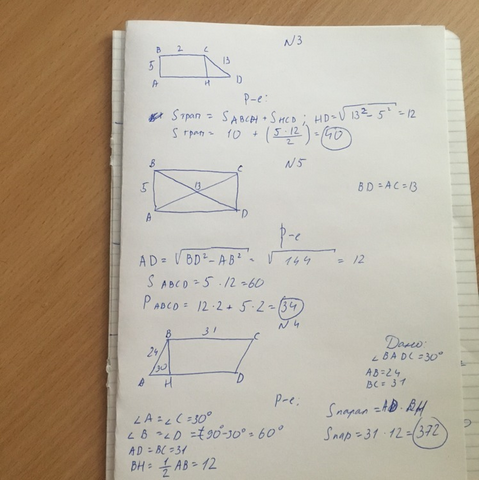 N3
B 2 C
5 13
A H D
р-е:
Sтрап = SABCH + SHCD; HD = √13² - 5² = 12
Sтрап = 10 + (5·12/2) = 40
N5
B C
5 13
A D
BD = AC = 13
р-е
AD = √BD² - AB² = √144 = 12
S ABCD = 5 · 12 = 60
P ABCD = 12·2 + 5·2 = 34
N4
B 31 C
24
30
A H D
Дано:
∠BADC = 30°
AB = 24
BC = 31
р-е:
∠A = ∠C = 30°
∠B = ∠D = 90° - 30° = 60°
AD = BC = 31
BH = 1/2 AB = 12
Sпарал = AD · BH
Sпар = 31 · 12 = 372